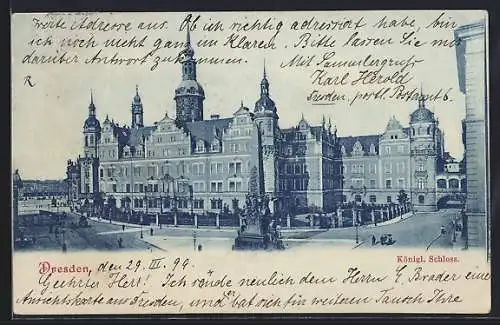 werte Adresse aus. Ob ich richtig adressiert habe, bin
ich noch nicht ganz im Klaren. Bitte lassen Sie mir
darüber Antwort zukommen.
Mit Sammlergruß
Karl Herold
R
Dresden, postl. Postamt 6.
Königl. Schloss.
Dresden, den 29. III. 99
Geehrter Herr! Ich sandte neulich dem Herrn C. Brader eine
Ansichtskarte aus Dresden, und er bat sich für weiteren Tausch Ihre